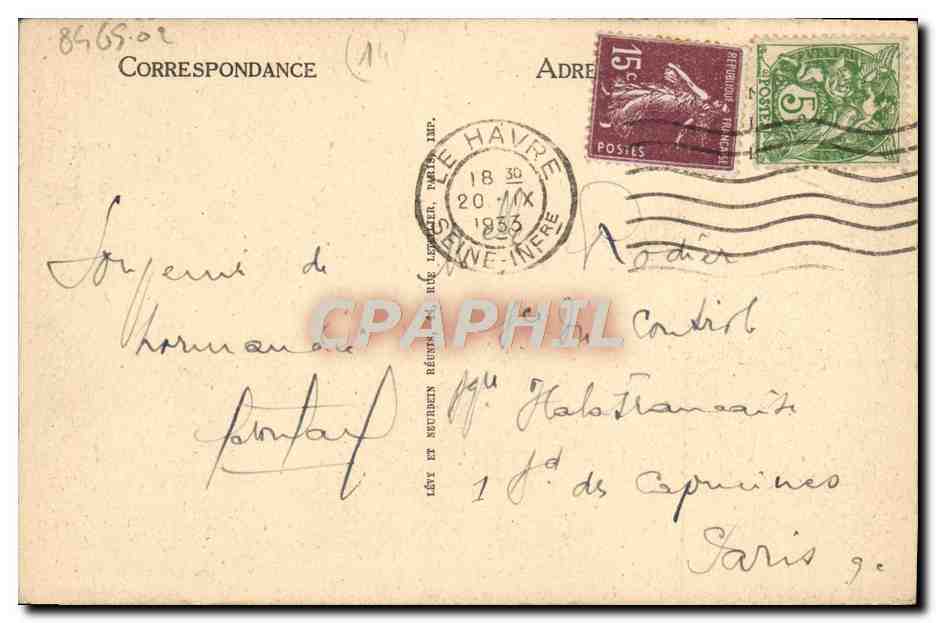 8565.02
(14
CORRESPONDANCE
ADRE
15c
REPUBLIQUE FRANÇAISE
POSTES
5c
POSTES
LE HAVRE
18 30
20 - IX
1933
SEINE-INFRE
LÉVY ET NEURDEIN RÉUNIS, 44, RUE LETELLIER, PARIS, IMP.
CPAPHIL
Souvenir de
normandie
M Rodier
Sce du Control
1 Bd des Capucines
Paris 9e